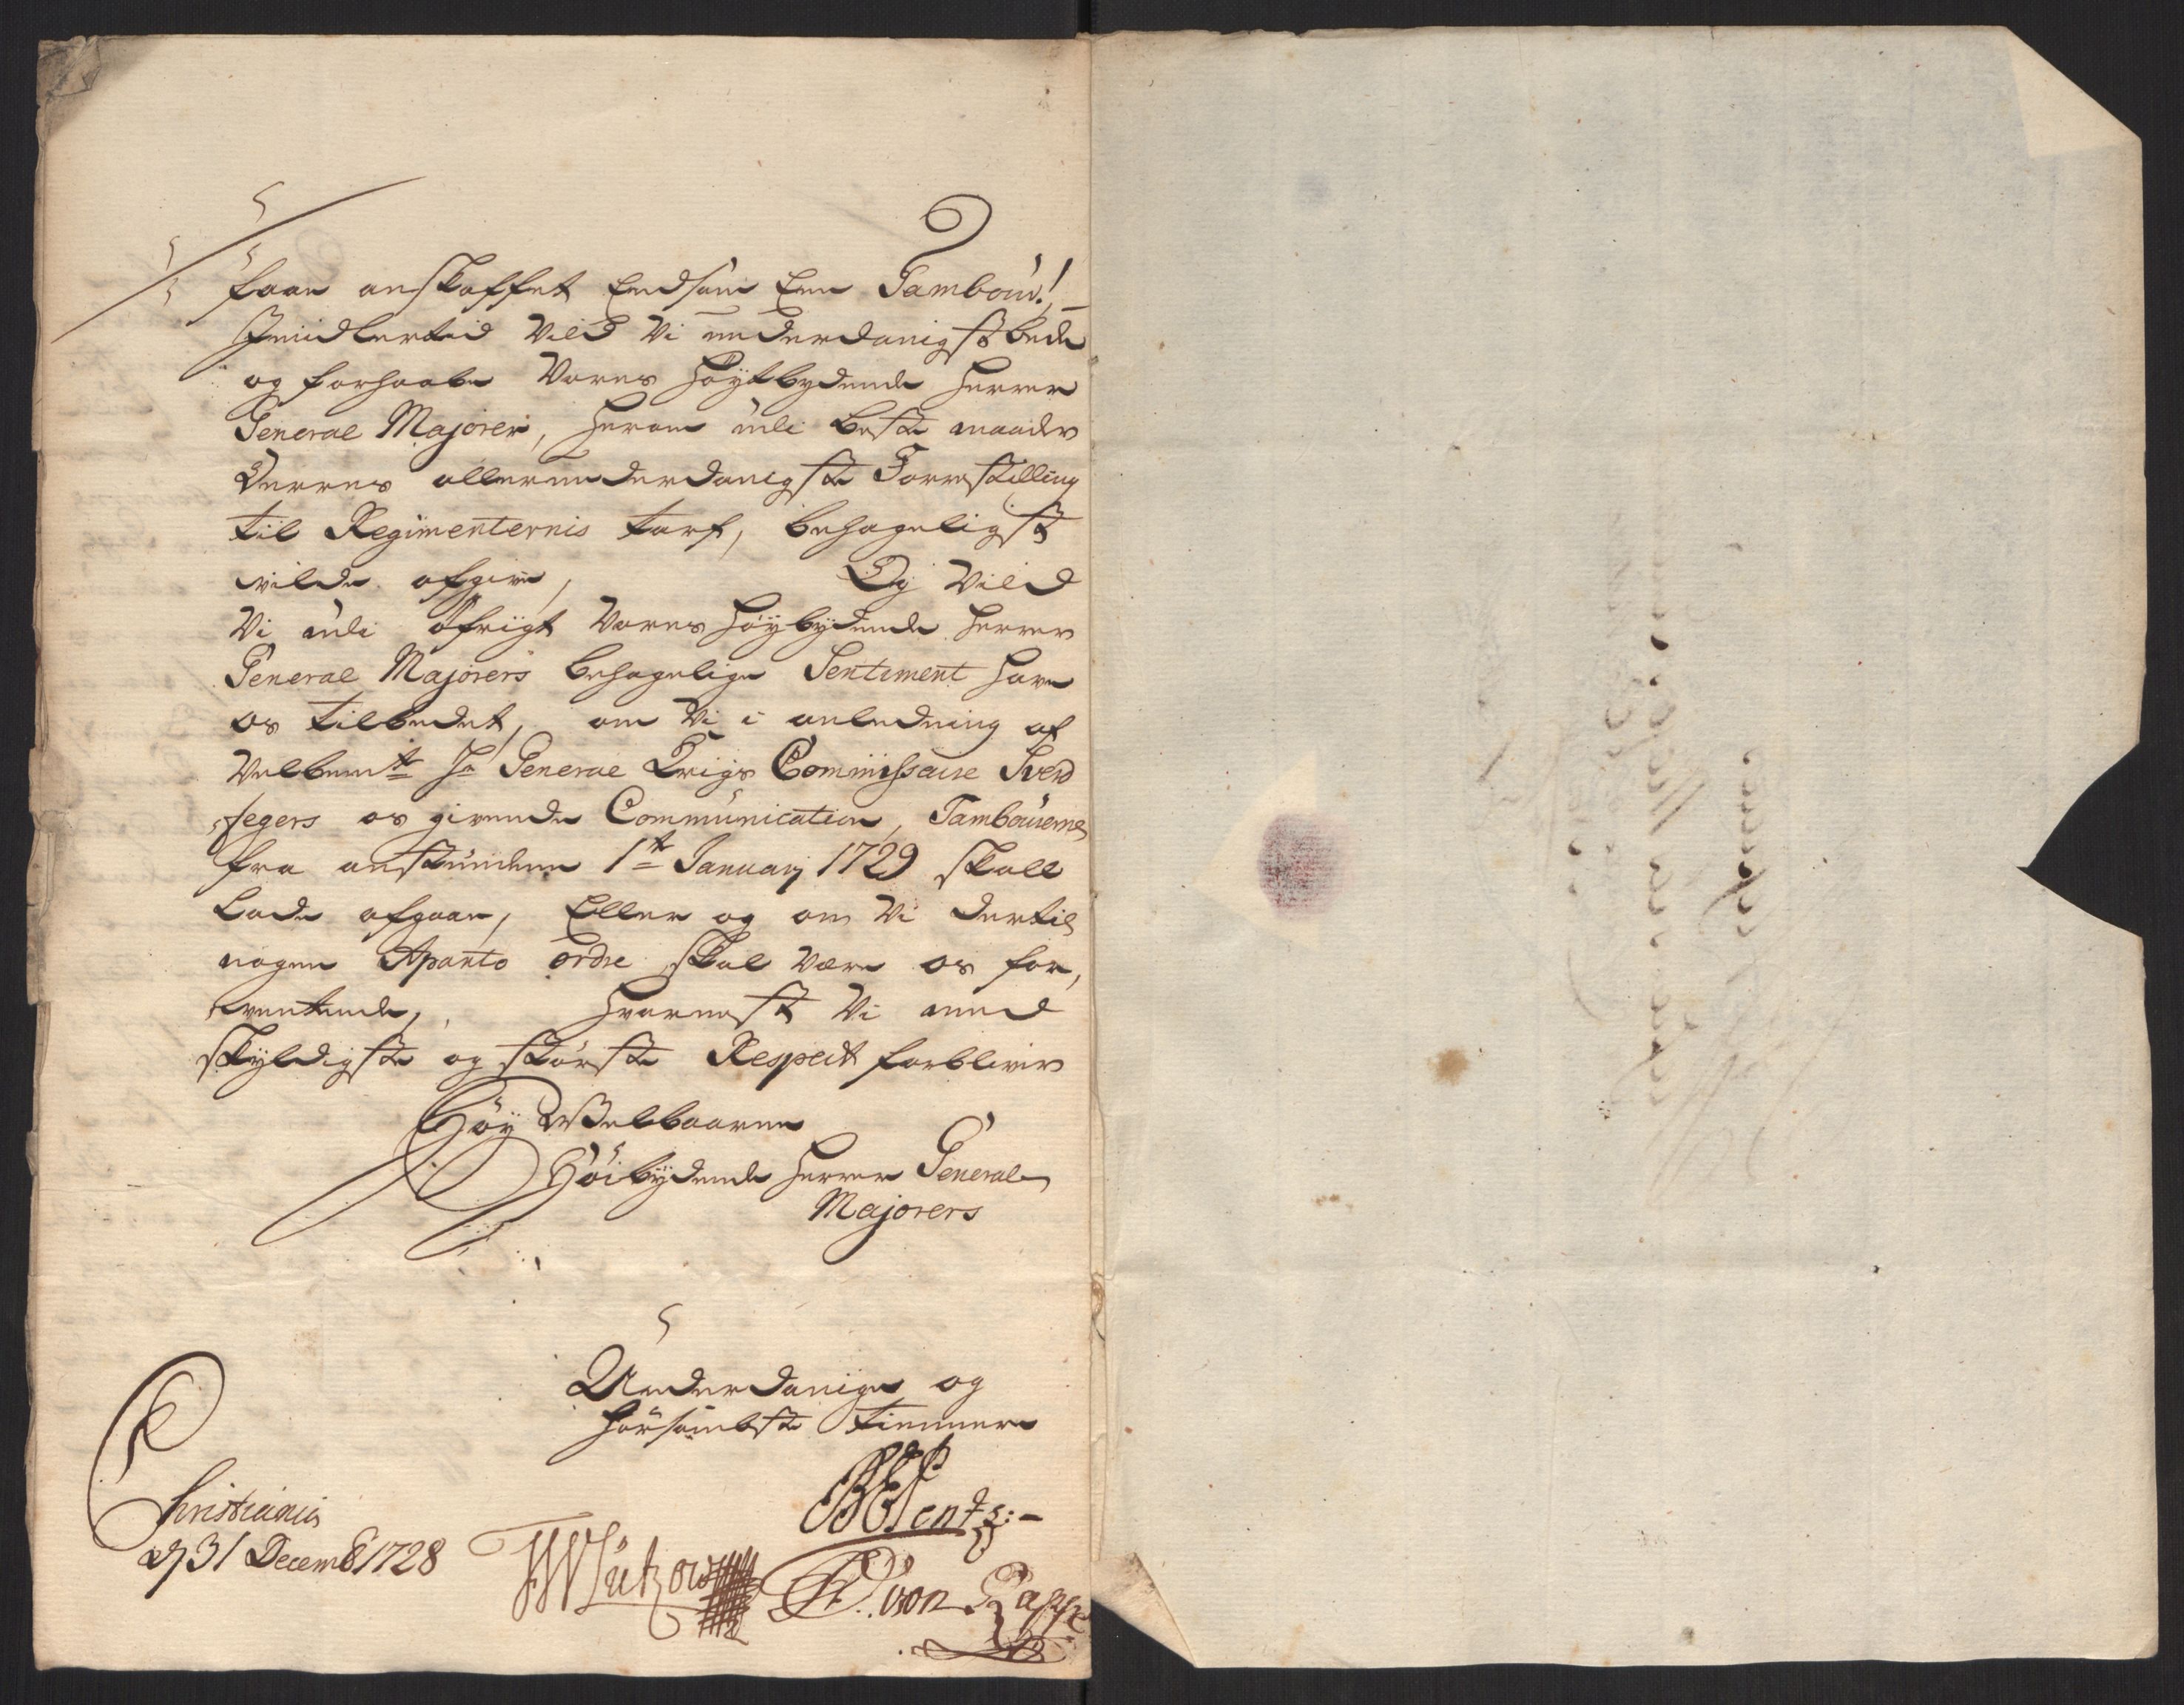 faar anskaffet Endsom Een Tambour!
Imidlertid vild vi underdanigst bede
og forhaabe Vores Høytbydende Herrer
General Majorer, herom udi beste maader
Deres allerunderdanigste Forrestilling
til Regimenternis tarf, behageligst
wilde afgive, Og vild
Vi udi øfrigt Vores Høybydende Herrer
General Majorers behagelige Sentiment have
os tilbedet, om Vi i anledning af
Velbemte Hr General Krigs Commissaire Sverd
fegers os givende Communication, Tambourerne
fra anstundende 1te Januarj 1729 skall
lade afgaae, Eller og om Vi dertil
nogen Aparto ordre skal være os for,
ventende, Hvornest Vi med
skyldigste og største Respect forbliver
Høy Welbaarne
Høibydende Herrer General
Majorers
Underdanige og
hørsambste tiennere
Christiania
d 31 Decemb 1728
Lützow
von